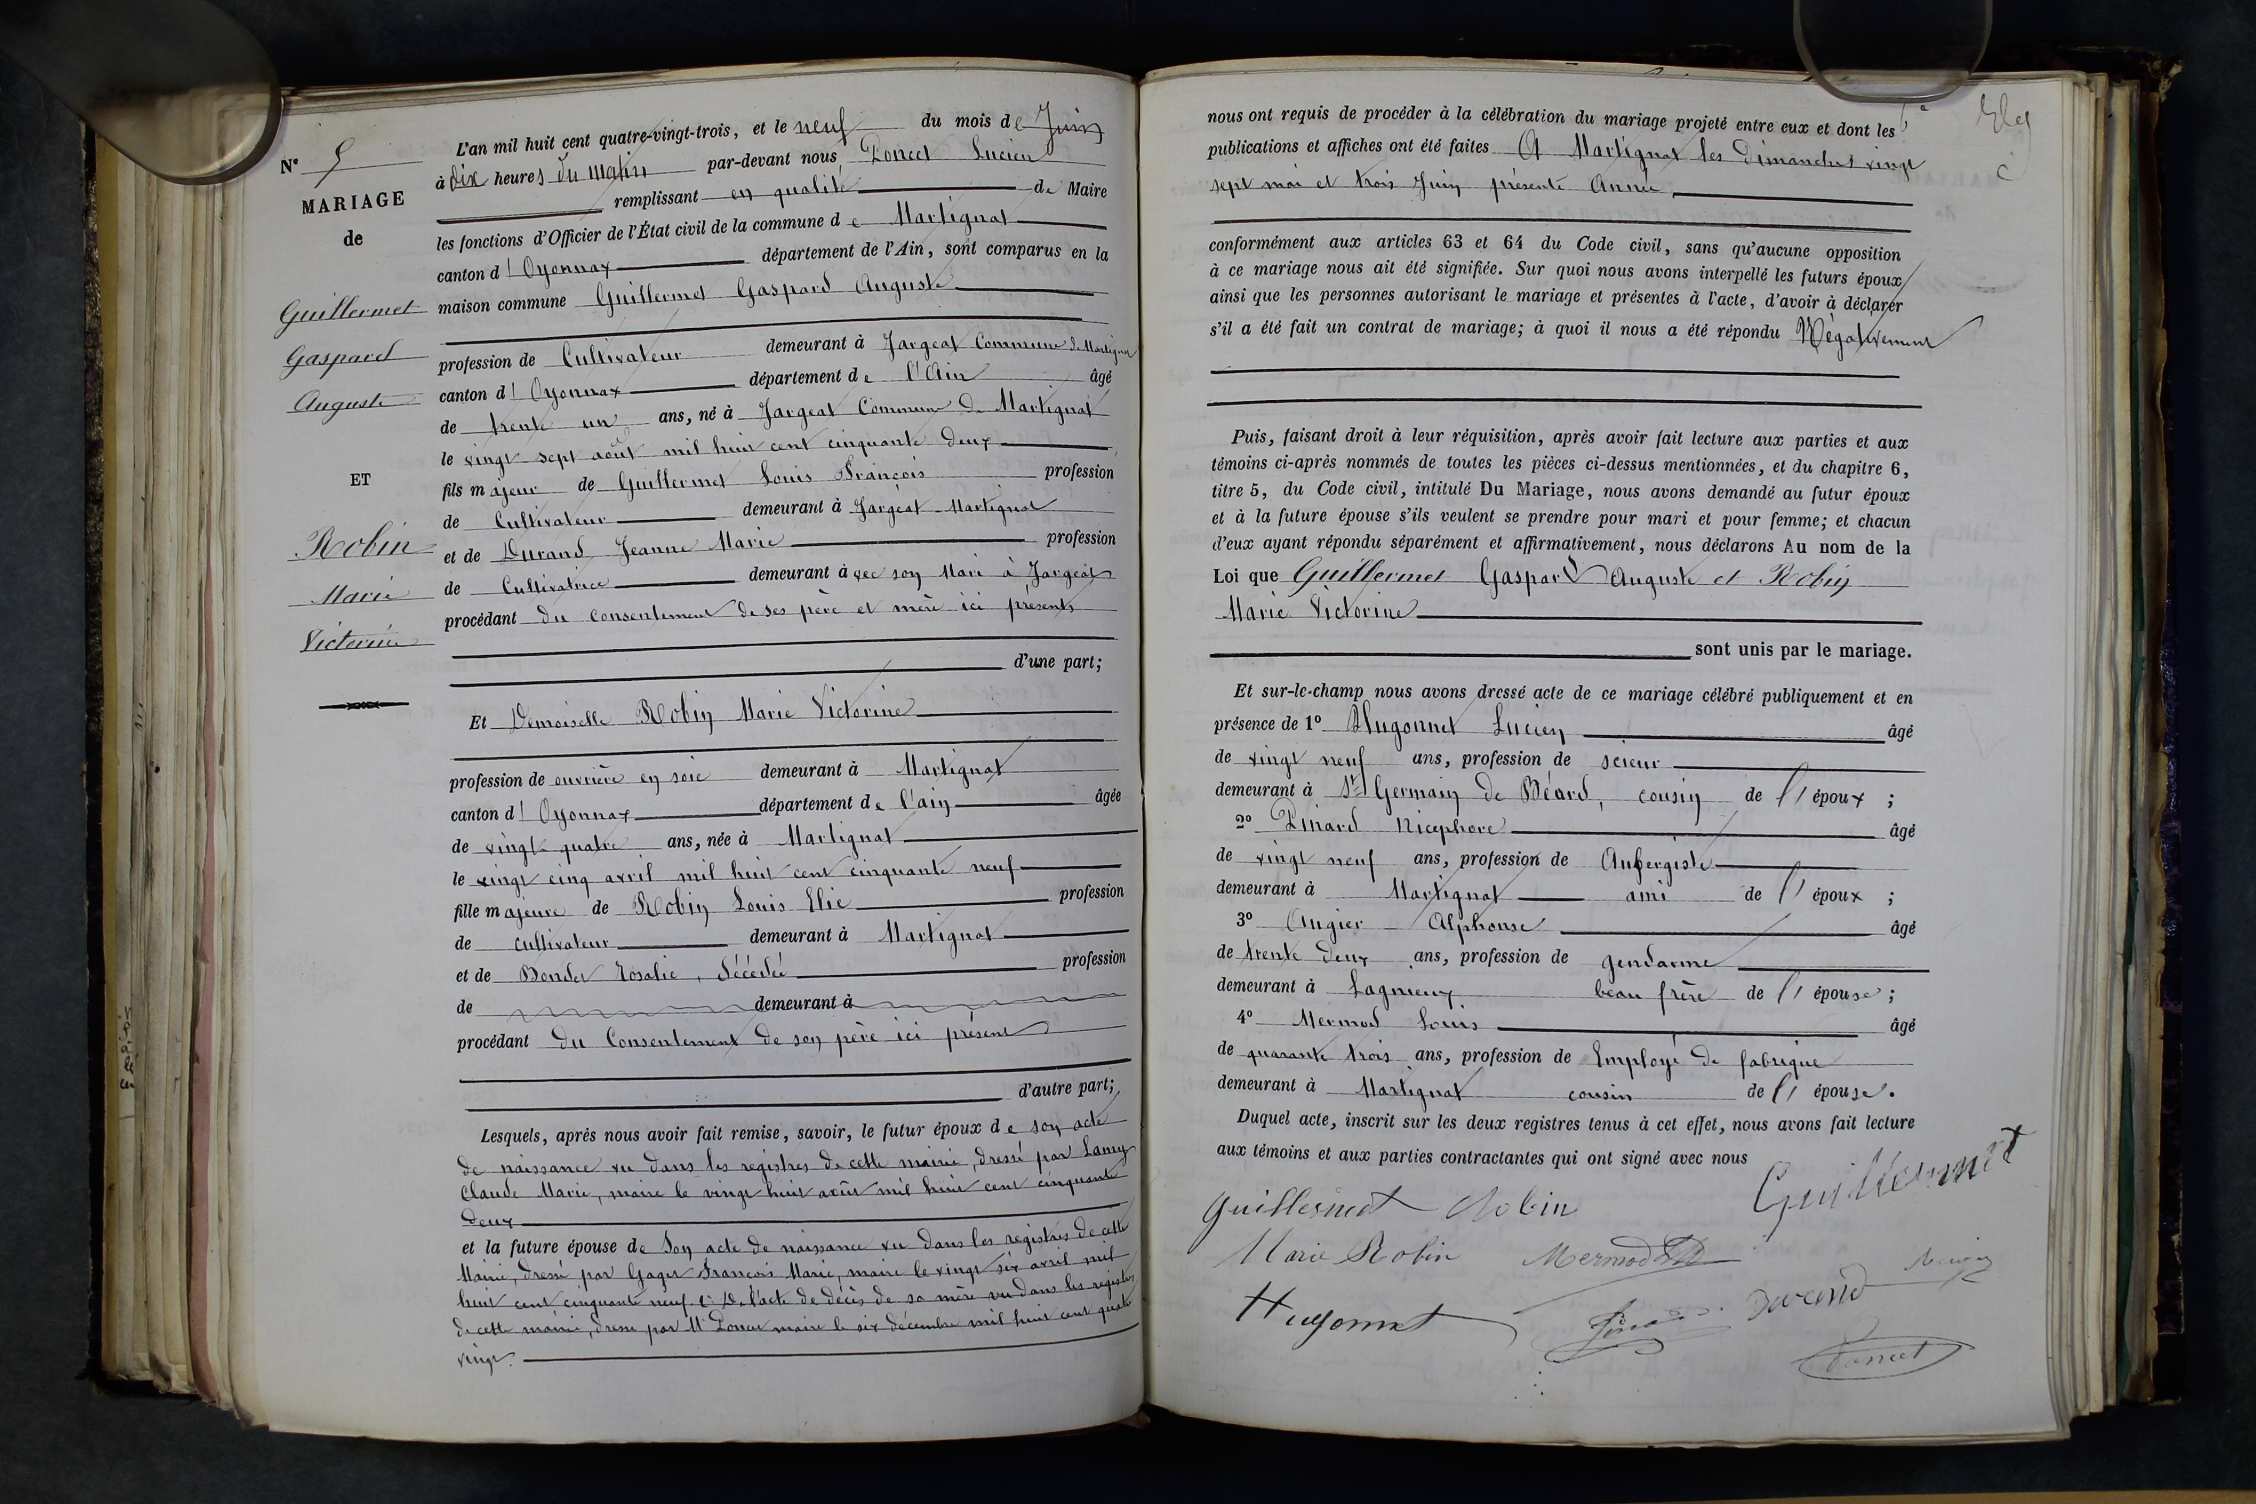 N° 5
MARIAGE
de
Guillermet
Gaspard
Auguste
ET
Robin
Marie
Victorine
L'an mil huit cent quatre-vingt-trois, et le neuf du mois de Juin
à dix heures du matin par-devant nous Poncet Lucien
remplissant en qualité de Maire
les fonctions d'Officier de l'État civil de la commune de Martignat
canton d'Oyonnax département de l'Ain, sont comparus en la
maison commune Guillermet Gaspard Auguste
profession de Cultivateur demeurant à Jargeat Commune de Martignat
canton d'Oyonnax département de l'Ain âgé
de trente un ans, né à Jargeat Commune de Martignat
le vingt sept août mil huit cent cinquante deux
fils majeur de Guillermet Louis François profession
de Cultivateur demeurant à Jargeat Martignat
et de Durand Jeanne Marie profession
de Cultivatrice demeurant avec son Mari à Jargeat
procédant du consentement de ses père et mère ici présents
d'une part;
Et Demoiselle Robin Marie Victorine
profession de ouvrière en soie demeurant à Martignat
canton d'Oyonnax département de l'ain âgée
de vingt-quatre ans, née à Martignat
le vingt cinq avril mil huit cent cinquante neuf
fille majeure de Robin Louis Elie profession
de cultivateur demeurant à Martignat
et de Rosalie, décédée profession
de demeurant à
procédant du Consentement de son père ici présent
d'autre part;
Lesquels, après nous avoir fait remise, savoir, le futur époux de son acte
de naissance vu dans les registres de cette mairie, dressé par Lamy
Claude Marie, maire le vingt huit août mil huit cent cinquante
deux
et la future épouse de Son acte de naissance vu dans les registres de cette
Mairie, dressé par François Marie, maire le vingt six avril mil
huit cent cinquante neuf. 2° De l'acte de décès de sa mère vu dans les registres
de cette mairie, dressé par Mr Poncet maire le six décembre mil huit cent quatre
vingt.
nous ont requis de procéder à la célébration du mariage projeté entre eux et dont les
publications et affiches ont été faites A Martignat les dimanches vingt
sept mai et trois Juin présente Année
conformément aux articles 63 et 64 du Code civil, sans qu'aucune opposition
à ce mariage nous ait été signifiée. Sur quoi nous avons interpellé les futurs époux
ainsi que les personnes autorisant le mariage et présentes à l'acte, d'avoir à déclarer
s'il a été fait un contrat de mariage; à quoi il nous a été répondu Négativement
Puis, faisant droit à leur réquisition, après avoir fait lecture aux parties et aux
témoins ci-après nommés de toutes les pièces ci-dessus mentionnées, et du chapitre 6,
titre 5, du Code civil, intitulé Du Mariage, nous avons demandé au futur époux
et à la future épouse s'ils veulent se prendre pour mari et pour femme; et chacun
d'eux ayant répondu séparément et affirmativement, nous déclarons Au nom de la
Loi que Guillermet Gaspard Auguste et Robin
Marie Victorine
sont unis par le mariage.
Et sur-le-champ nous avons dressé acte de ce mariage célébré publiquement et en
présence de 1° Hugonnet Lucien âgé
de vingt neuf ans, profession de scieur
demeurant à St Germain de Béard, cousin de l'époux ;
2° Pinard Nicephore âgé
de vingt neuf ans, profession de Aubergiste
demeurant à Martignat ami de l'époux ;
3° Augier Alphonse âgé
de trente deux ans, profession de gendarme
demeurant à Lagnieux beau frère de l'épouse ;
4° Mermod Louis âgé
de quarante trois ans, profession de Employé de fabrique
demeurant à Martignat cousin de l'épouse.
Duquel acte, inscrit sur les deux registres tenus à cet effet, nous avons fait lecture
aux témoins et aux parties contractantes qui ont signé avec nous
Guillermet Robin Guillermet
Marie Robin Mermod
Hugonnet Durand
Poncet